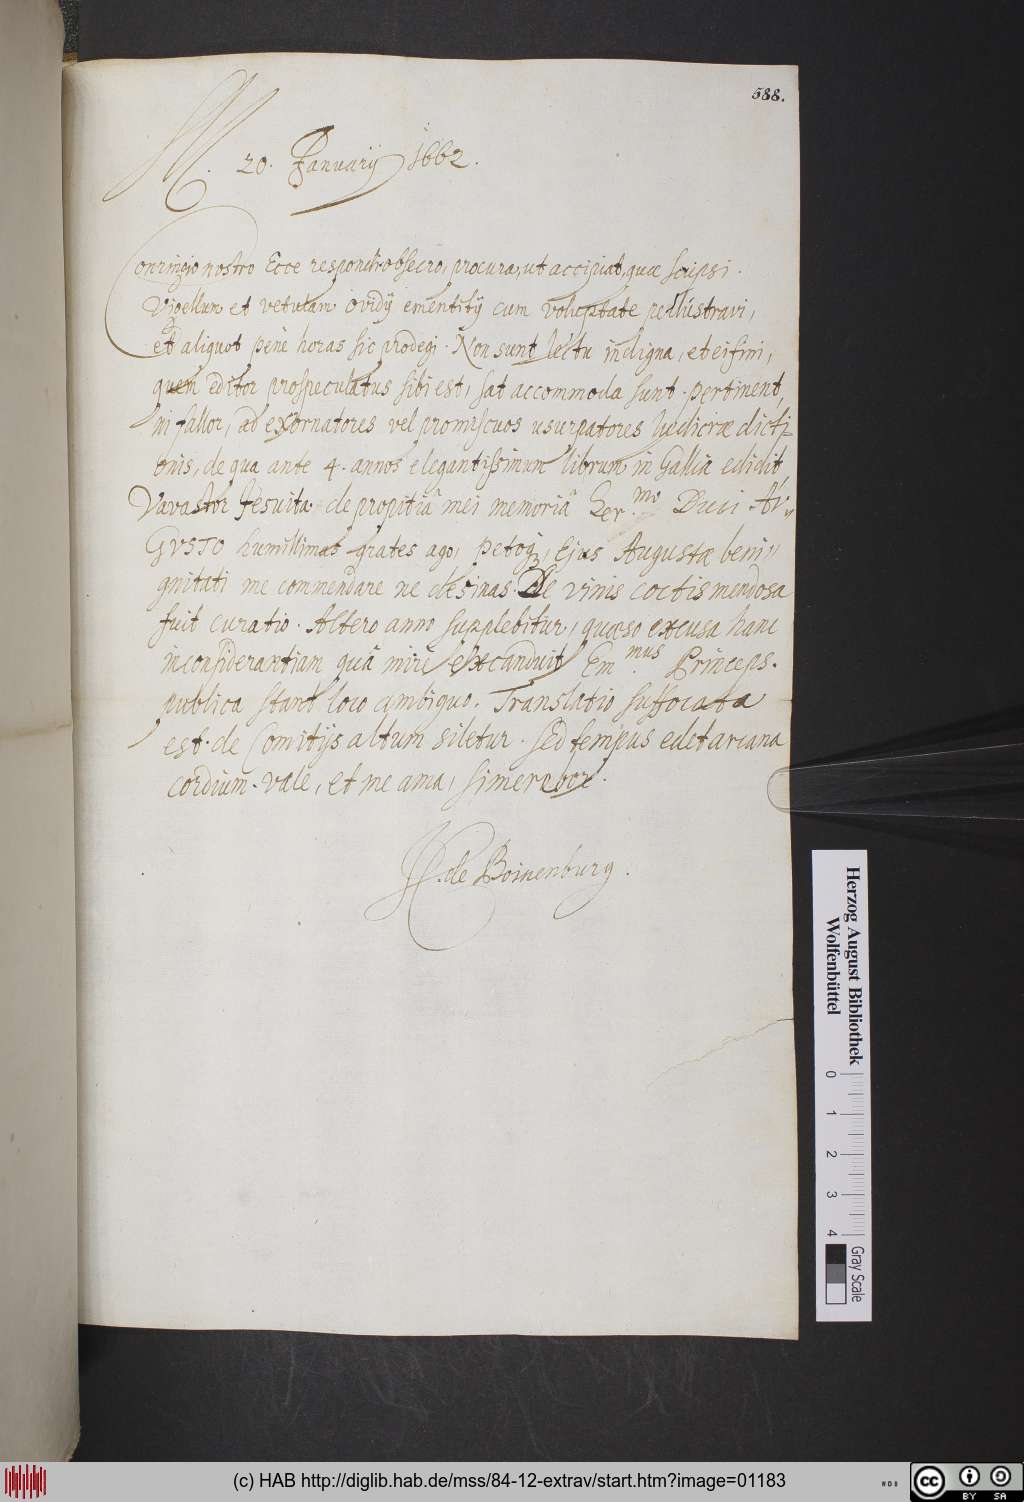 588.
M. 20. Januarij 1662.
Conringio nostro Ecce respondi. obsecro, procura, ut accipiat, quae scripsi.
et vetulam Ovidij ementitij cum voluptate perlustravi,
et aliquot penè horas sic prodegi. Non sunt lectu indigna, et ei fini,
quem editor prospeculatus sibi est, sat accommoda sunt. pertinent,
ni fallor, ad exornatores vel promiscuos usurpatores ludicrae dicti-
onis, de qua ante 4. annos elegantissimum librum in Gallia edidit
Vavastor Jesuita. de propitiâ mei memoriâ Ser.mo Duci AV-
GVSTO humillimas grates ago, petoq;, Ejus Augustae beni-
gnitati me commendare ne desinas. De vinis coctis mendosa
fuit curatio. Altero anno supplebitur, quaeso excusa hanc
inconsiderantiam quâ mirè excanduit Em.mus Princeps.
publica stant loco ambiguo. Translatio suffocata
est. de Comitijs altum siletur. sed tempus edet arcana
cordium. vale, et me ama, si merebor.
de Boinenburg.
Herzog August Bibliothek
Wolfenbüttel
0 1 2 3 4
Gray Scale
(c) HAB http://diglib.hab.de/mss/84-12-extrav/start.htm?image=01183
cc BY SA